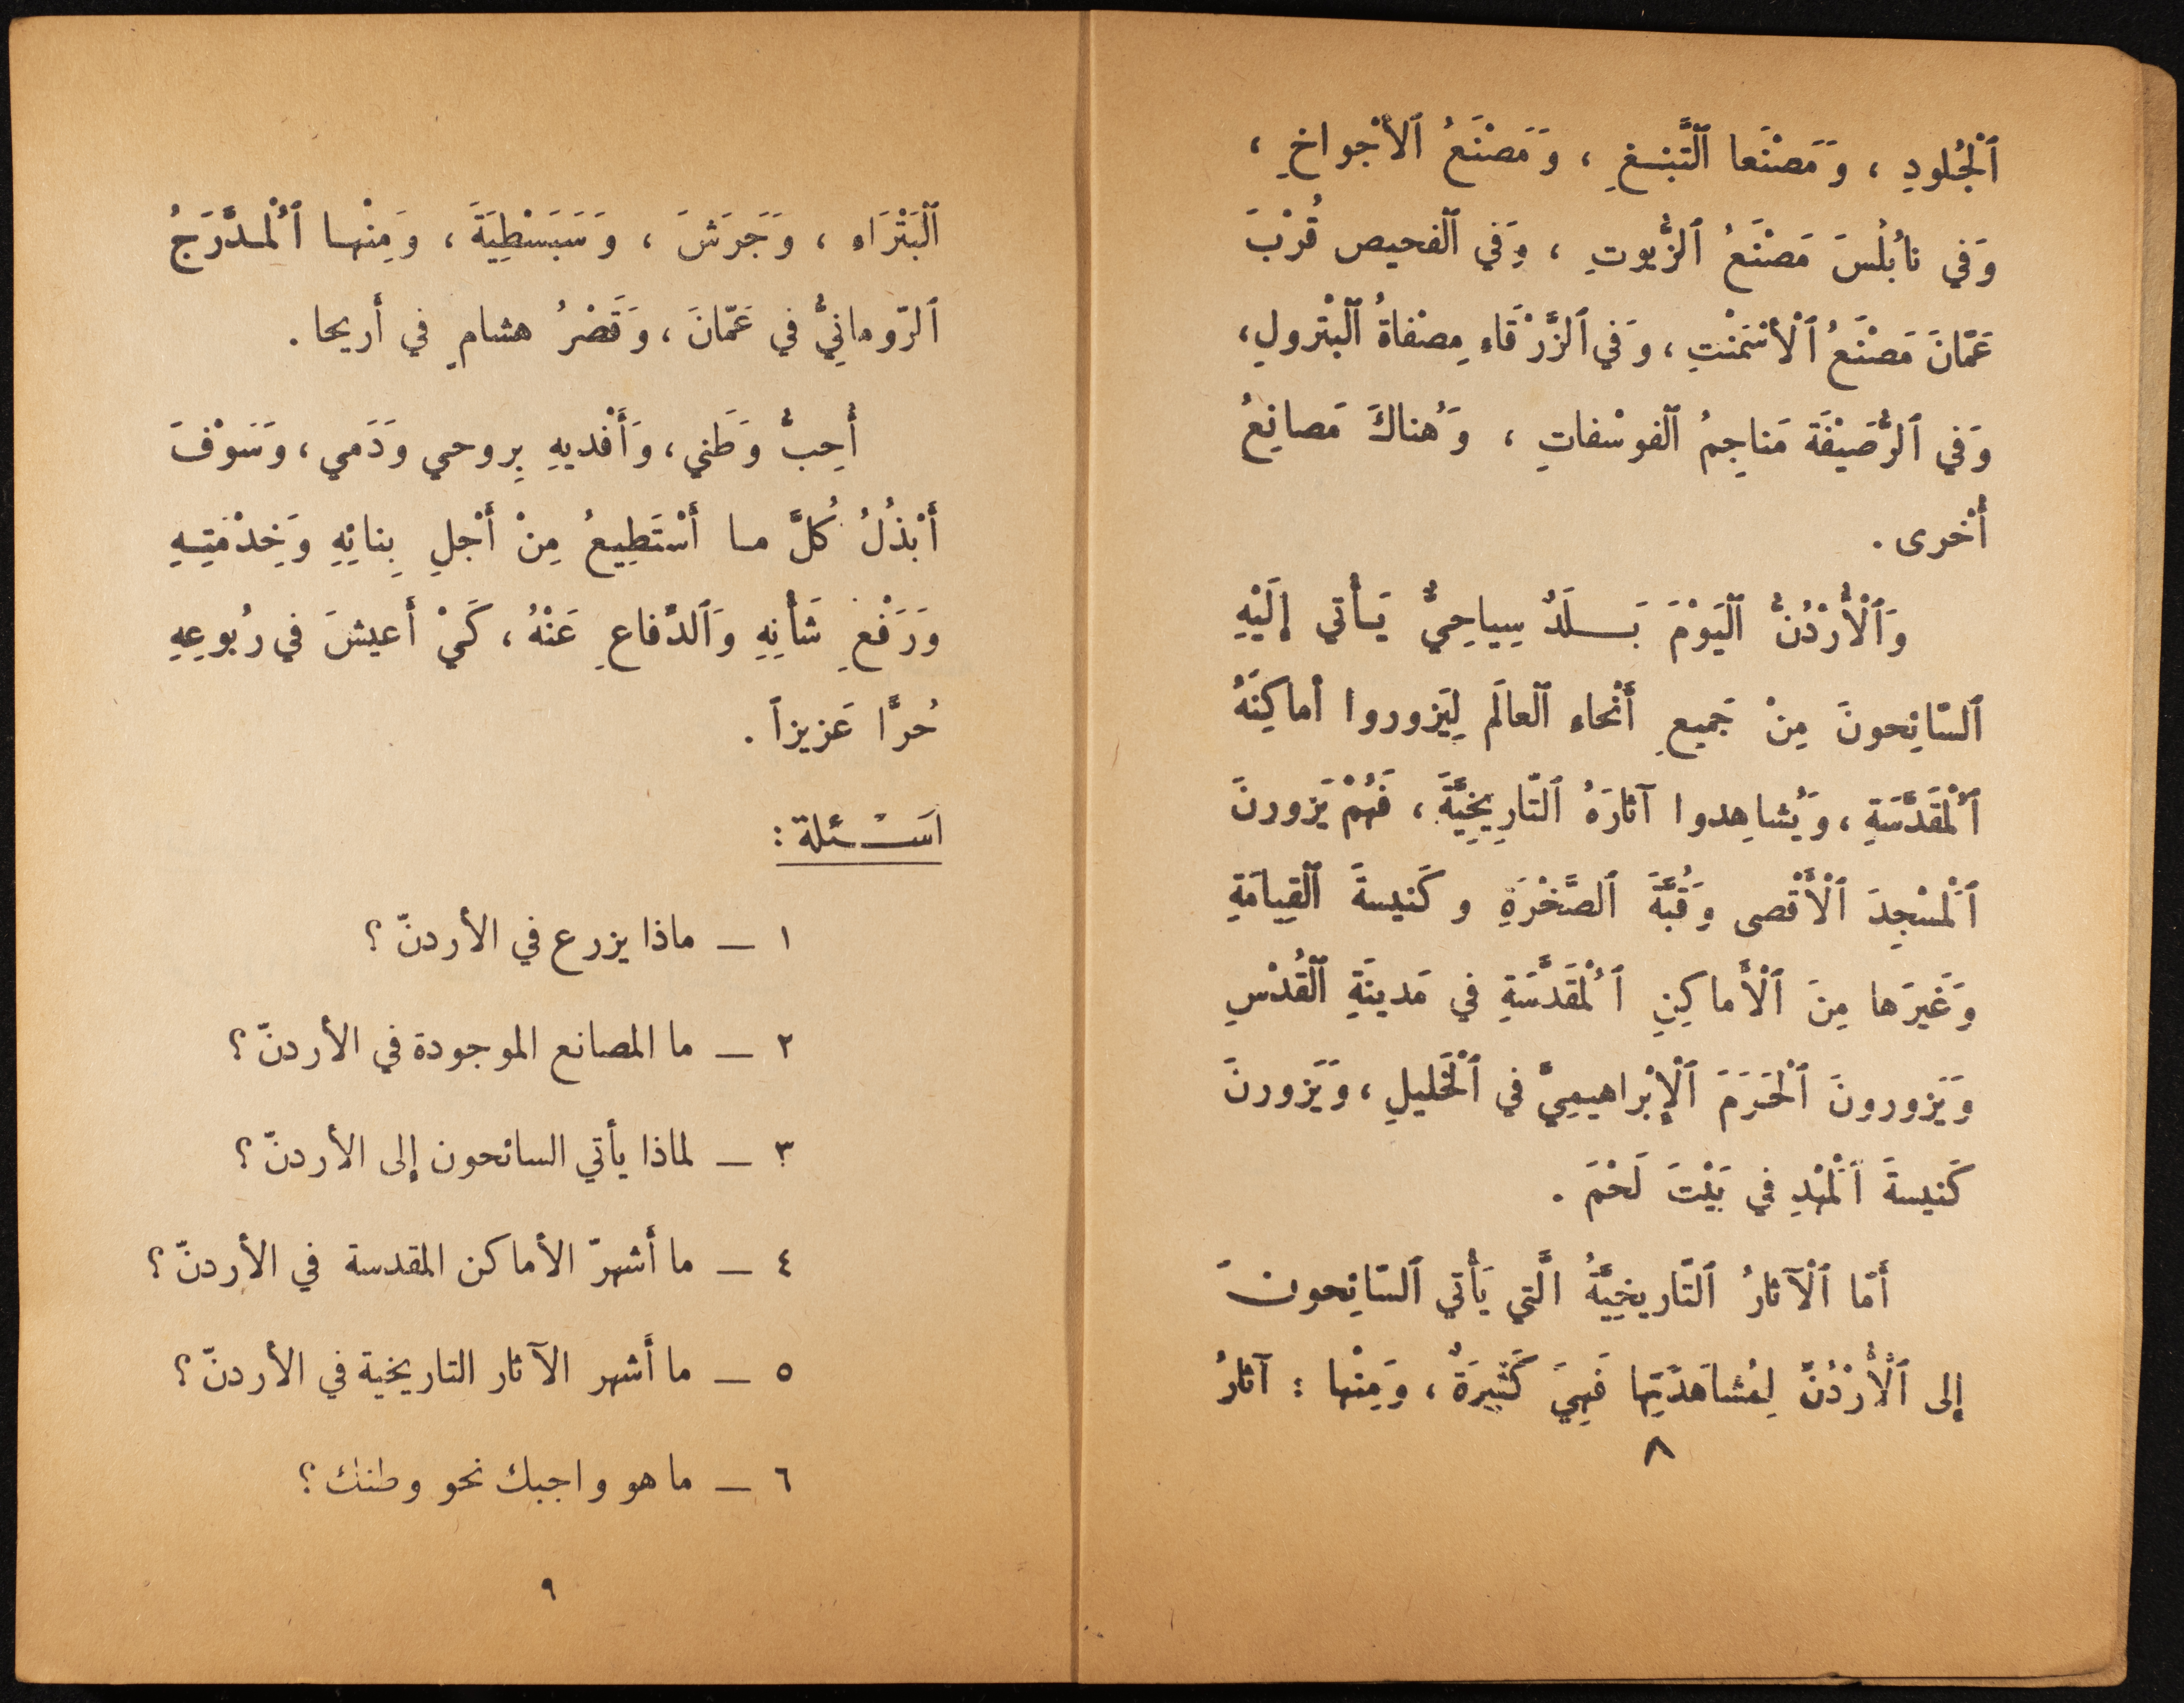 ٱلْجُلودِ ، وَمَصْنَعا ٱلتَّبْغِ ، وَمَصْنَعُ ٱلأَجْواخِ ،
وَفي نابُلُسَ مَصْنَعُ ٱلزُّيوتِ ، وَفي ٱلفحيص قُرْبَ
عَمّانَ مَصْنَعُ ٱلْأَسْمَنْتِ ، وَفي ٱلزَّرْقَاءِ مِصْفاةُ ٱلبْترولِ ،
وَفي ٱلرُّصَيْفَة مَناجِمُ ٱلفوسْفاتِ ، وَهُناكَ مَصانِعُ
أُخْرى .
وَٱلْأُرْدُنُّ ٱليَوْمَ بَلَدٌ سِياحِيٌّ يَأْتي إِلَيْهِ
ٱلسّائِحونَ مِنْ جَميعِ أَنْحاءِ ٱلعالَم لِيَزوروا أماكِنَهُ
ٱلْمُقَدَّسَةِ ، وَيُشاهِدوا آثارَهُ ٱلتّارِيخِيَّةَ ، فَهُمْ يَزورونَ
ٱلْمَسْجِدَ ٱلْأَقْصى وَقُبَّةَ ٱلصَّخْرَةِ و كَنيسةَ ٱلقِيامَةِ
وَغَيرَها مِنَ ٱلْأَماكِنِ ٱلْمُقَدَّسَةِ في مَدينَةِ ٱلقُدْسِ
وَيَزورونَ ٱلْحَرَمَ ٱلْإِبْراهيمِيَّ في ٱلْخَليلِ ، وَيَزورونَ
كَنيسةَ ٱلْمَهْدِ في بَيْتَ لَحْمَ .
أَمّا ٱلْآثارُ ٱلتّاريخِيَّةُ الَّتي يَأْتي ٱلسّائِحونَ
إلى ٱلْأُرْدُنِّ لِمُشاهَدَتِها فَهِيَ كَثيرَةٌ ، وَمِنْها : آثارُ
٨
ٱلْبَتْرَاءِ ، وَجَرَشَ ، وَسَبَسْطِيَةَ ، وَمِنْها ٱلْمُدَّرَجُ
ٱلرّومانِيُّ في عَمّانَ ، وَقَصْرُ هشامٍ في أَريحا .
أُحِبُّ وَطَني ، وَأَفْديهِ بِروحي وَدَمي ، وَسَوْفَ
أَبْذُلُ كُلَّ ما أَسْتَطِيعُ مِنْ أَجْلِ بِنائِهِ وَخِدْمَتِهِ
وَرَفْعِ شَأْنِهِ وَٱلدِّفاعِ عَنْهُ ، كَيْ أَعيشَ في رُبُوعِهِ
حُرًّا عَزيزاً .
اسَـْـئلة :
١ — ماذا يزرع في الأردنّ ؟
٢ — ما المصانع الموجودة في الأردنّ ؟
٣ — لماذا يأتي السائحون إلى الأردنّ ؟
٤ — ما أَشهرّ الأماكن المقدسة في الأردنّ ؟
٥ — ما أَشهر الآثار التاريخية في الأردنّ ؟
٦ — ما هو واجبك نحو وطنك ؟
٩